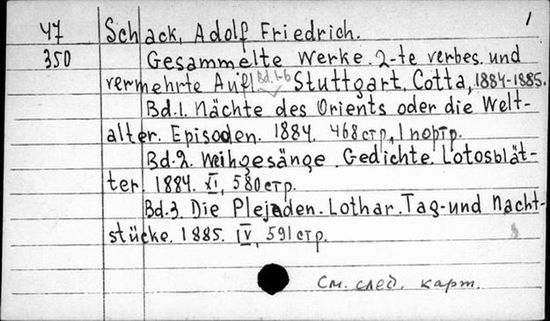 47 Schack, Adolf Friedrich. 1
350 Gesammelte Werke. 2-te verbes. und
vermehrte Aufl. Bd. 1-6 Stuttgart, Cotta, 1884-1885.
Bd. 1. Nächte des Orients oder die Welt-
alter. Episoden. 1884. 468 стр., 1 портр.
Bd. 2. Weihgesänge. Gedichte. Lotosblät-
ter. 1884. XI, 580 стр.
Bd. 3. Die Plejaden. Lothar. Tag- und Nacht-
stücke. 1885. IV, 591 стр.
См. след. карт.